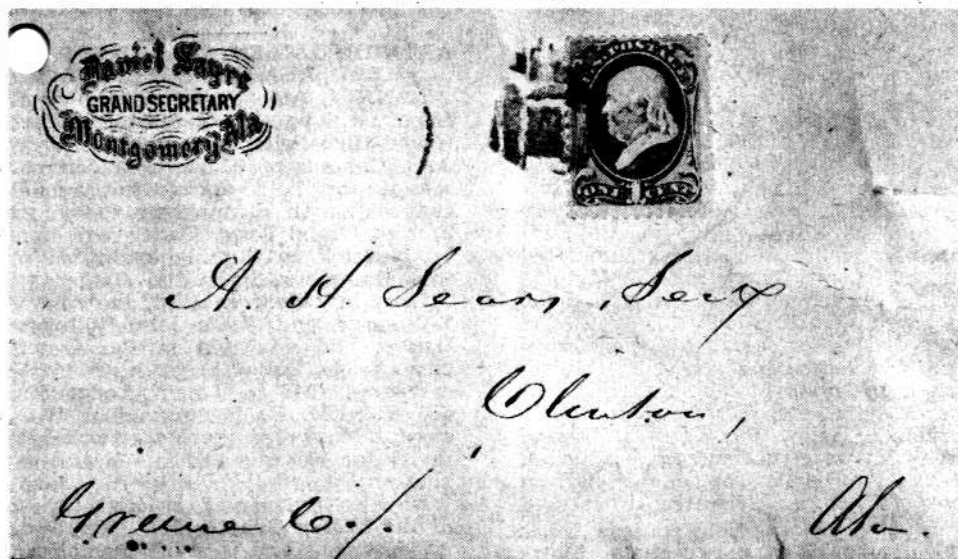 Daniel Sayre
GRAND SECRETARY
Montgomery, Ala
A. H. Sears, Secy
Clinton,
Greene Co.
Ala.